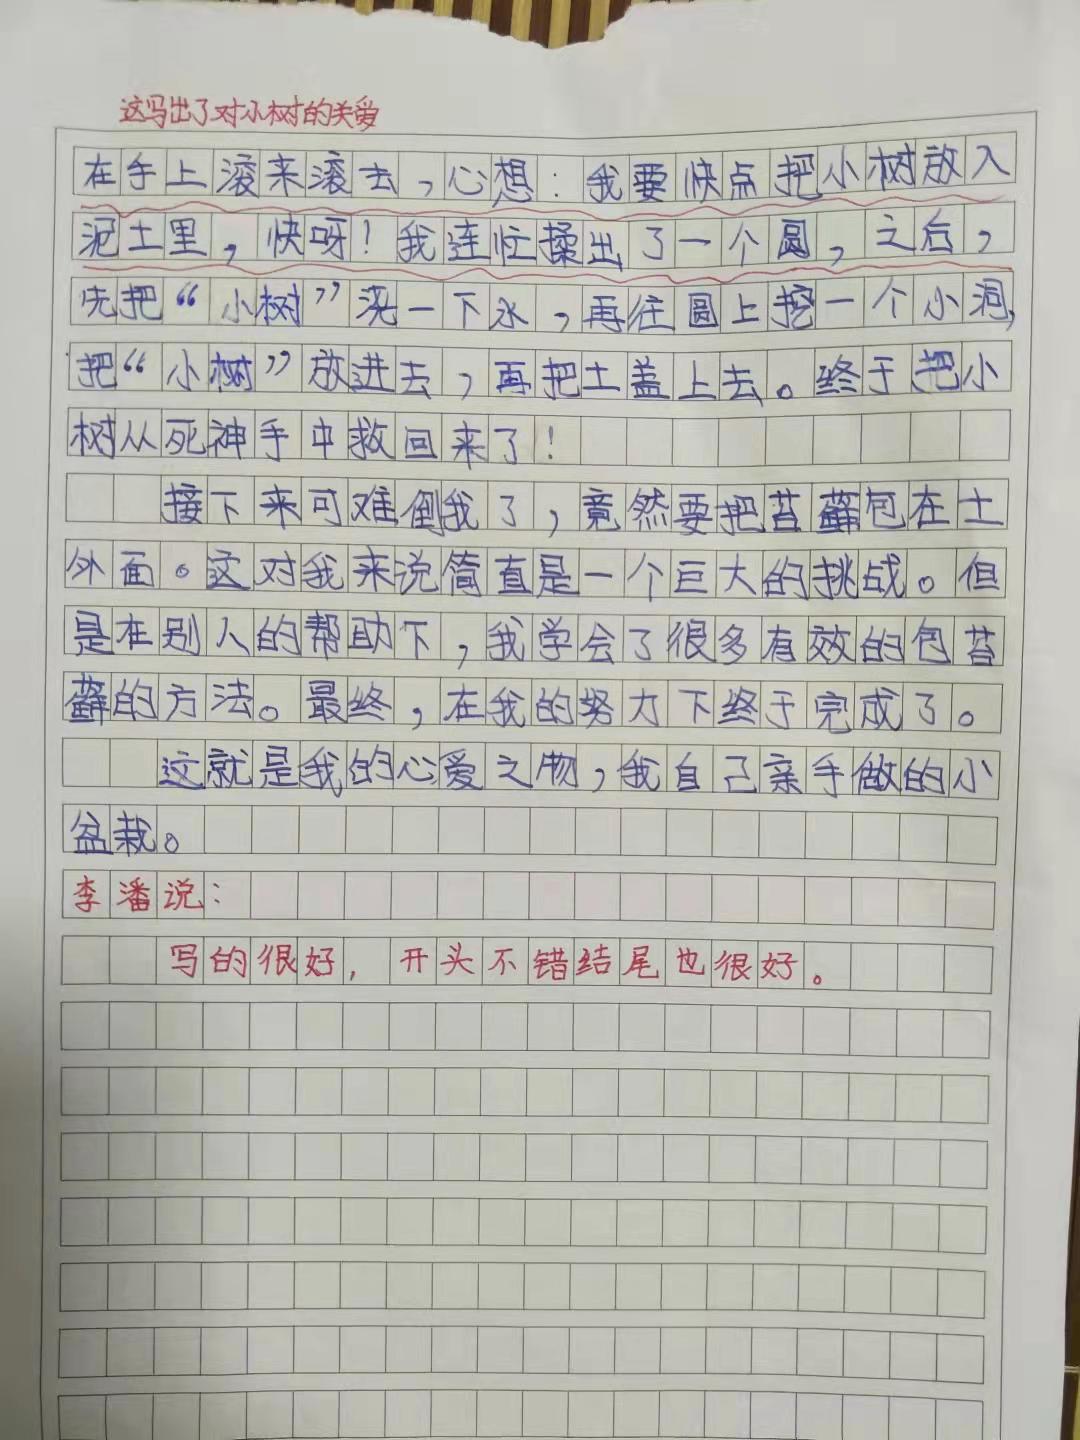 这写出了对小树的关爱
在手上滚来滚去，心想：我要快点把小树放入
泥土里，快呀！我连忙揉出了一个圆，之后，
先把“小树”洗一下水，再往圆上挖一个小洞，
把“小树”放进去，再把土盖上去。终于把小
树从死神手中救回来了！
接下来可难倒我了，竟然要把苔藓包在土
外面。这对我来说简直是一个巨大的挑战。但
是在别人的帮助下，我学会了很多有效的包苔
藓的方法。最终，在我的努力下终于完成了。
这就是我的心爱之物，我自己亲手做的小
盆栽。
李潘说：
写的很好，开头不错结尾也很好。